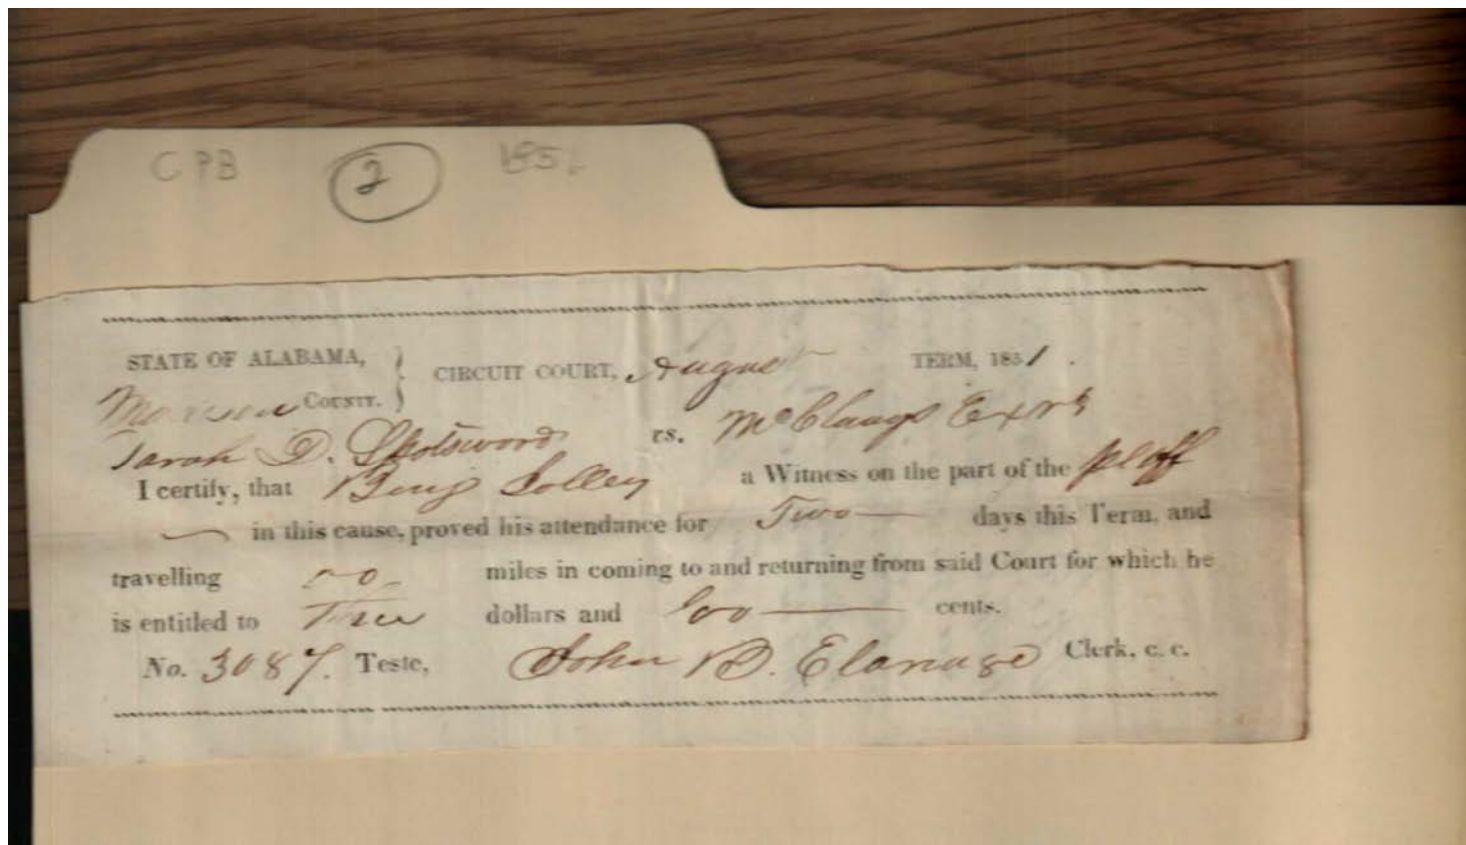 CPB 2 185
STATE OF ALABAMA,
CIRCUIT COURT, August TERM, 1851.
COUNTY.
Sarah D. Spotswood vs. McClungs Exrs
I certify, that Benj Solley a Witness on the part of the plaff
in this cause, proved his attendance for Two days this Term, and
travelling miles in coming to and returning from said Court for which he
is entitled to dollars and cents.
No. 3087. Teste, John B. Clerk, c. c.